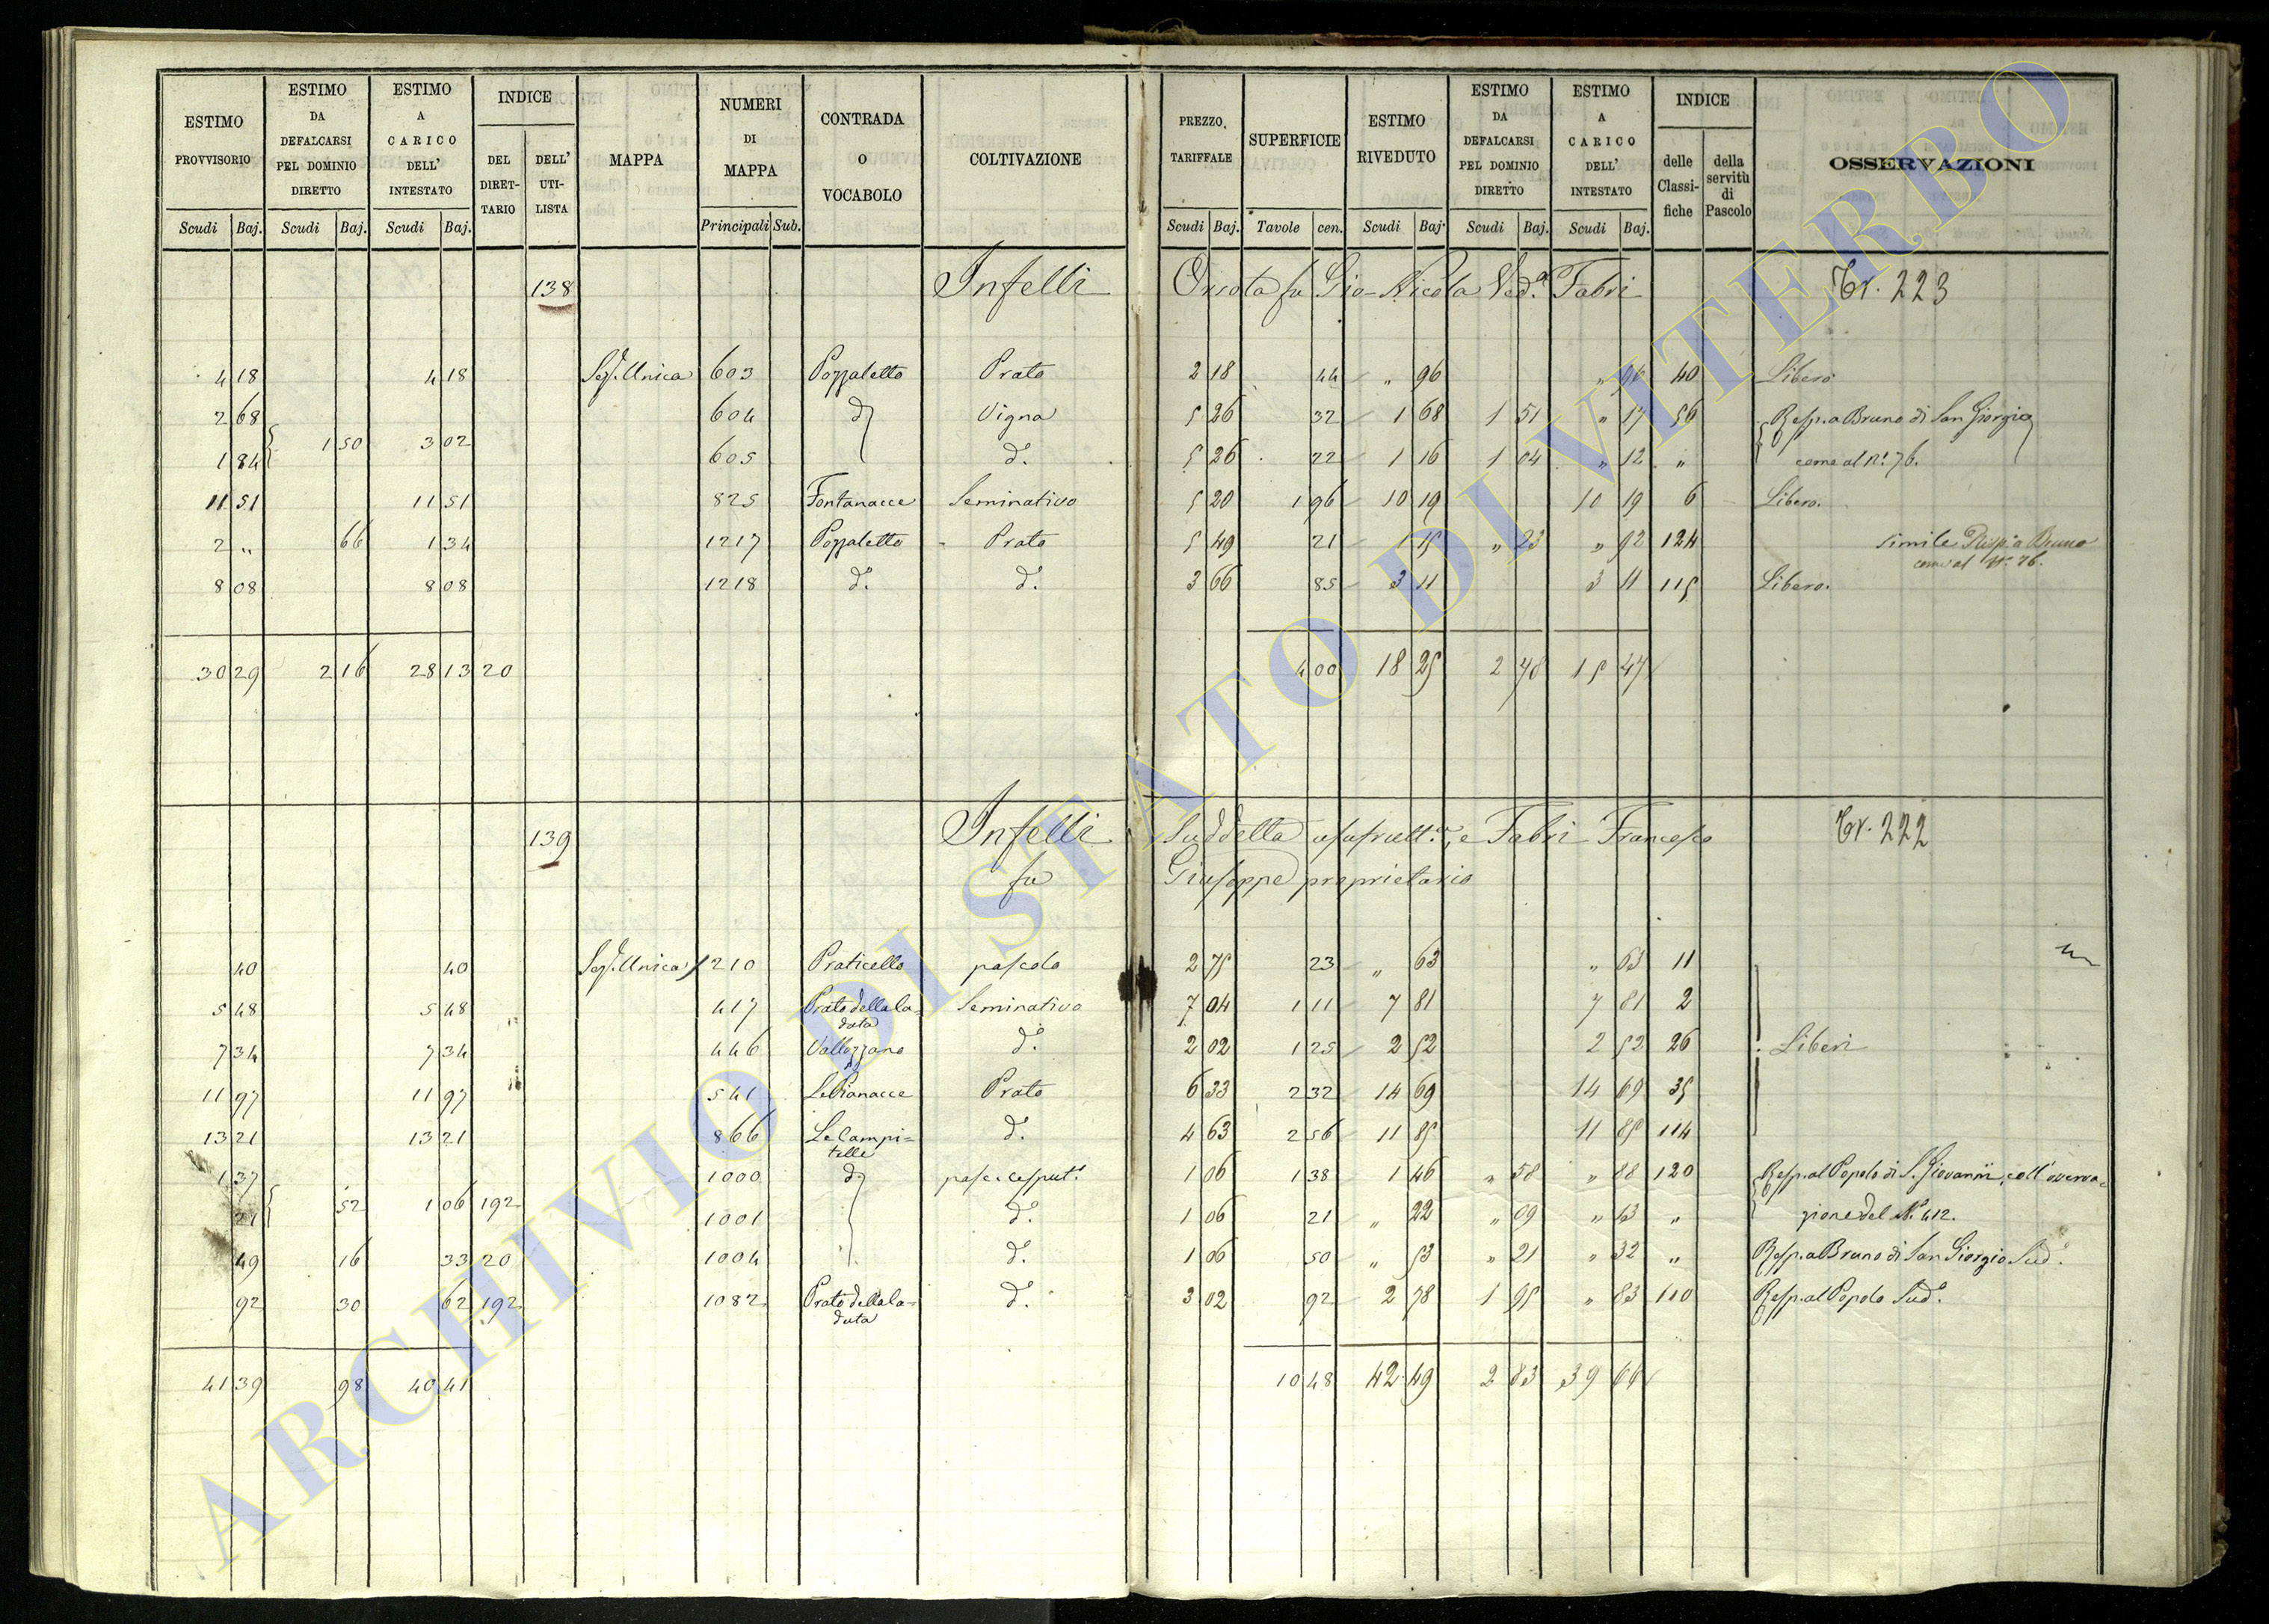 ESTIMO PROVVISORIO | ESTIMO DA DEFALCARSI PEL DOMINIO DIRETTO | ESTIMO A CARICO DELL' INTESTATO | INDICE DEL DIRETTARIO | DELL' UTILISTA | MAPPA | NUMERI DI MAPPA | CONTRADA O VOCABOLO | COLTIVAZIONE | PREZZO TARIFFALE | SUPERFICIE | ESTIMO RIVEDUTO | ESTIMO DA DEFALCARSI PEL DOMINIO DIRETTO | ESTIMO A CARICO DELL' INTESTATO | INDICE delle Classifiche | della servitù di Pascolo | OSSERVAZIONI
Scudi Baj. | Scudi Baj. | Scudi Baj. | Principali Sub. | Scudi Baj. | Tavole cen. | Scudi Baj. | Scudi Baj. | Scudi Baj.
138 Infelli Orsola fu Gio- Nicola Ved.ª Fabri Tr. 223
4 18 4 18 Sez. Unica 603 Pozzaletto Prato 2 18 44 " 96 " 96 40 Libero
2 68 604 d.° Vigna 5 26 32 1 68 1 51 " 17 56 Resp. a Bruno di San Giorgio
1 50 3 02
1 84 605 d.° 5 26 22 1 16 1 04 " 12 " come al N.° 76.
11 51 11 51 825 Fontanacce Seminativo 5 20 1 96 10 19 10 19 6 Libero.
2 " 66 1 34 1217 Pozzaletto Prato 5 49 21 1 15 " 23 " 92 124 simile Risp. a Bruno
come al N.° 76.
8 08 8 08 1218 d.° d.° 3 66 85 3 11 3 11 115 Libero.
30 29 2 16 28 13 20 4 00 18 25 2 78 15 47
139 Infelli Suddetta usufrutt.ª, e Fabri Francesco Tr. 222
fu Giuseppe proprietario
40 40 Sez. Unica 210 Praticello pascolo 2 75 23 " 63 " 63 11
5 48 5 48 417 Prato della la= Seminativo 7 04 1 11 7 81 7 81 2
data
7 34 7 34 446 Vallozzano d.° 2 02 1 25 2 52 2 52 26 Liberi
11 97 11 97 541 Le Pianacce Prato 6 33 2 32 14 69 14 69 35
13 21 13 21 866 Le Campi= d.° 4 63 2 56 11 85 11 85 114
telle
1 37 1000 d.° pasc. cesput.° 1 06 1 38 1 46 " 58 " 88 120 Resp. al Popolo di S. Giovanni, coll'osserva=
52 1 06 192
21 1001 d.° 1 06 21 " 22 " 09 " 13 " zione del N.° 412.
49 16 33 20 1004 d.° 1 06 50 " 53 " 21 " 32 " Resp. a Bruno di San Giorgio Sud.°
92 30 62 192 1082 Prato della la= d.° 3 02 92 2 78 1 95 " 83 110 Resp. al Popolo Sud.°
data
41 39 98 40 41 10 48 42 49 2 83 39 66
ARCHIVIO DI STATO DI VITERBO